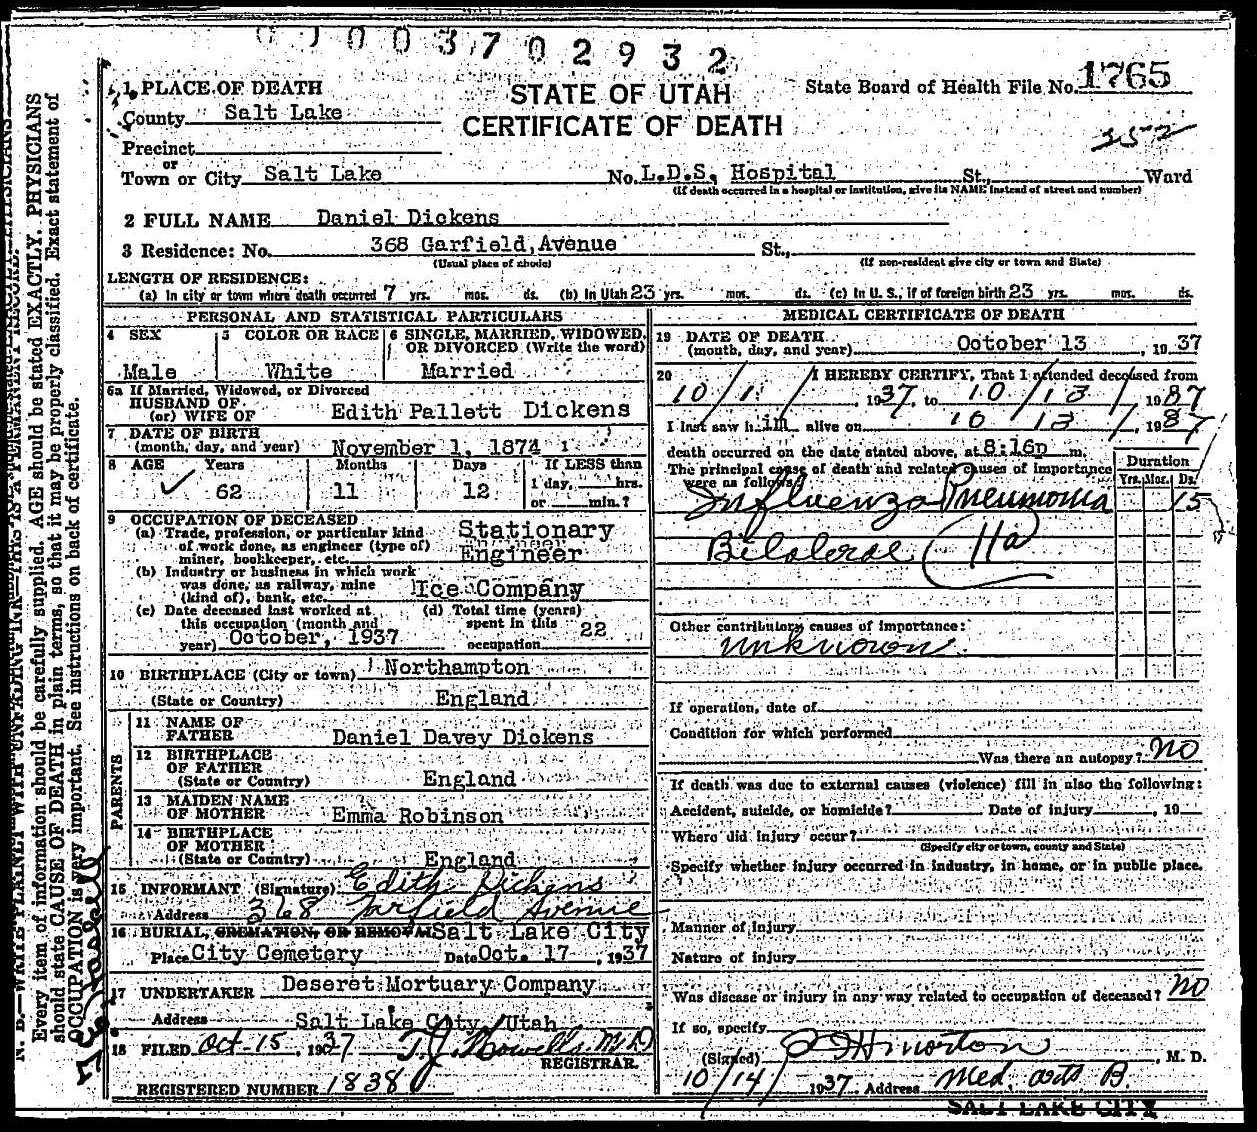 003702932
1 PLACE OF DEATH
STATE OF UTAH
State Board of Health File No. 1765
County Salt Lake
CERTIFICATE OF DEATH
352
Precinct
or
Town or City Salt Lake No. L.D.S. Hospital St., Ward
(If death occurred in a hospital or institution, give its NAME instead of street and number)
2 FULL NAME Daniel Dickens
3 Residence: No. 368 Garfield Avenue St.,
(Usual place of abode) (If non-resident give city or town and State)
LENGTH OF RESIDENCE:
(a) In city or town where death occurred 7 yrs. mos. ds. (b) In Utah 23 yrs. mos. ds. (c) In U. S., if of foreign birth 23 yrs. mos. ds.
PERSONAL AND STATISTICAL PARTICULARS
4 SEX
Male
5 COLOR OR RACE
White
6 SINGLE, MARRIED, WIDOWED,
OR DIVORCED (Write the word)
Married
6a If Married, Widowed, or Divorced
HUSBAND OF
(or) WIFE OF Edith Pallett Dickens
7 DATE OF BIRTH
(month, day, and year) November 1, 1874
8 AGE Years Months Days If LESS than
1 day, hrs.
62 11 12 or min.?
9 OCCUPATION OF DECEASED
(a) Trade, profession, or particular kind
of work done, as engineer (type of)
miner, bookkeeper, etc. Stationary
Engineer
(b) Industry or business in which work
was done, as railway, mine
(kind of), bank, etc. Ice Company
(c) Date deceased last worked at
this occupation (month and
year) October, 1937
(d) Total time (years)
spent in this
occupation 22
10 BIRTHPLACE (City or town) Northampton
(State or Country) England
PARENTS
11 NAME OF
FATHER Daniel Davey Dickens
12 BIRTHPLACE
OF FATHER
(State or Country) England
13 MAIDEN NAME
OF MOTHER Emma Robinson
14 BIRTHPLACE
OF MOTHER
(State or Country) England
15 INFORMANT (Signature) Edith Dickens
Address 368 Garfield Avenue
16 BURIAL, CREMATION, OR REMOVAL Salt Lake City
Place City Cemetery Date Oct. 17, 1937
17 UNDERTAKER Deseret Mortuary Company
Address Salt Lake City, Utah
18 FILED Oct-15, 1937 T.J. Howells M.D.
REGISTRAR.
REGISTERED NUMBER 1838
MEDICAL CERTIFICATE OF DEATH
19 DATE OF DEATH
(month, day, and year) October 13, 1937
20 I HEREBY CERTIFY, That I attended deceased from
10/1/, 1937, to 10/13/, 1937
I last saw him alive on 10/13/, 1937
death occurred on the date stated above, at 8:16p m.
The principal cause of death and related causes of importance
were as follows:
Duration
Yrs. Mos. Ds.
Influenza Pneumonia 15
Bilateral (11a)
Other contributory causes of importance:
Unknown
If operation, date of
Condition for which performed
Was there an autopsy? No
If death was due to external causes (violence) fill in also the following:
Accident, suicide, or homicide? Date of injury , 19
Where did injury occur?
(Specify city or town, county and State)
Specify whether injury occurred in industry, in home, or in public place.
Manner of injury
Nature of injury
Was disease or injury in any way related to occupation of deceased? No
If so, specify
(Signed) Morton, M. D.
10/14/ 1937 Address Med. Arts B.
SALT LAKE CITY
N. B.—WRITE PLAINLY WITH UNFADING INK—THIS IS A PERMANENT RECORD.
Every item of information should be carefully supplied. AGE should be stated EXACTLY. PHYSICIANS
should state CAUSE OF DEATH in plain terms, so that it may be properly classified. Exact statement of
OCCUPATION is very important. See instructions on back of certificate.